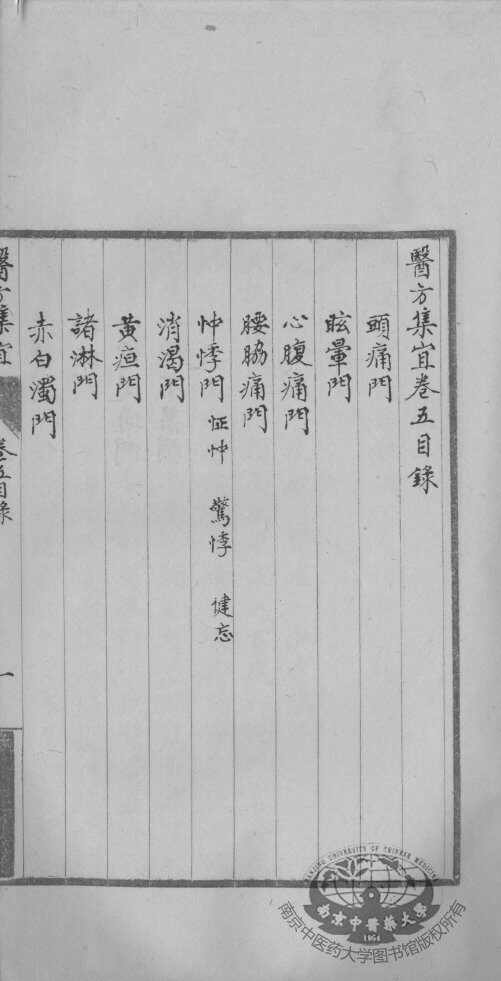 醫方集宜卷五目錄
頭痛門
眩暈門
心腹痛門
腰脇痛門
忡悸門 怔忡 驚悸 健忘
消渴門
黄疸門
諸淋門
赤白濁門
醫方集宜 卷五目錄 一
NANJING UNIVERSITY OF CHINESE MEDICINE
南京中醫藥大學
1954
南京中医药大学图书馆版权所有